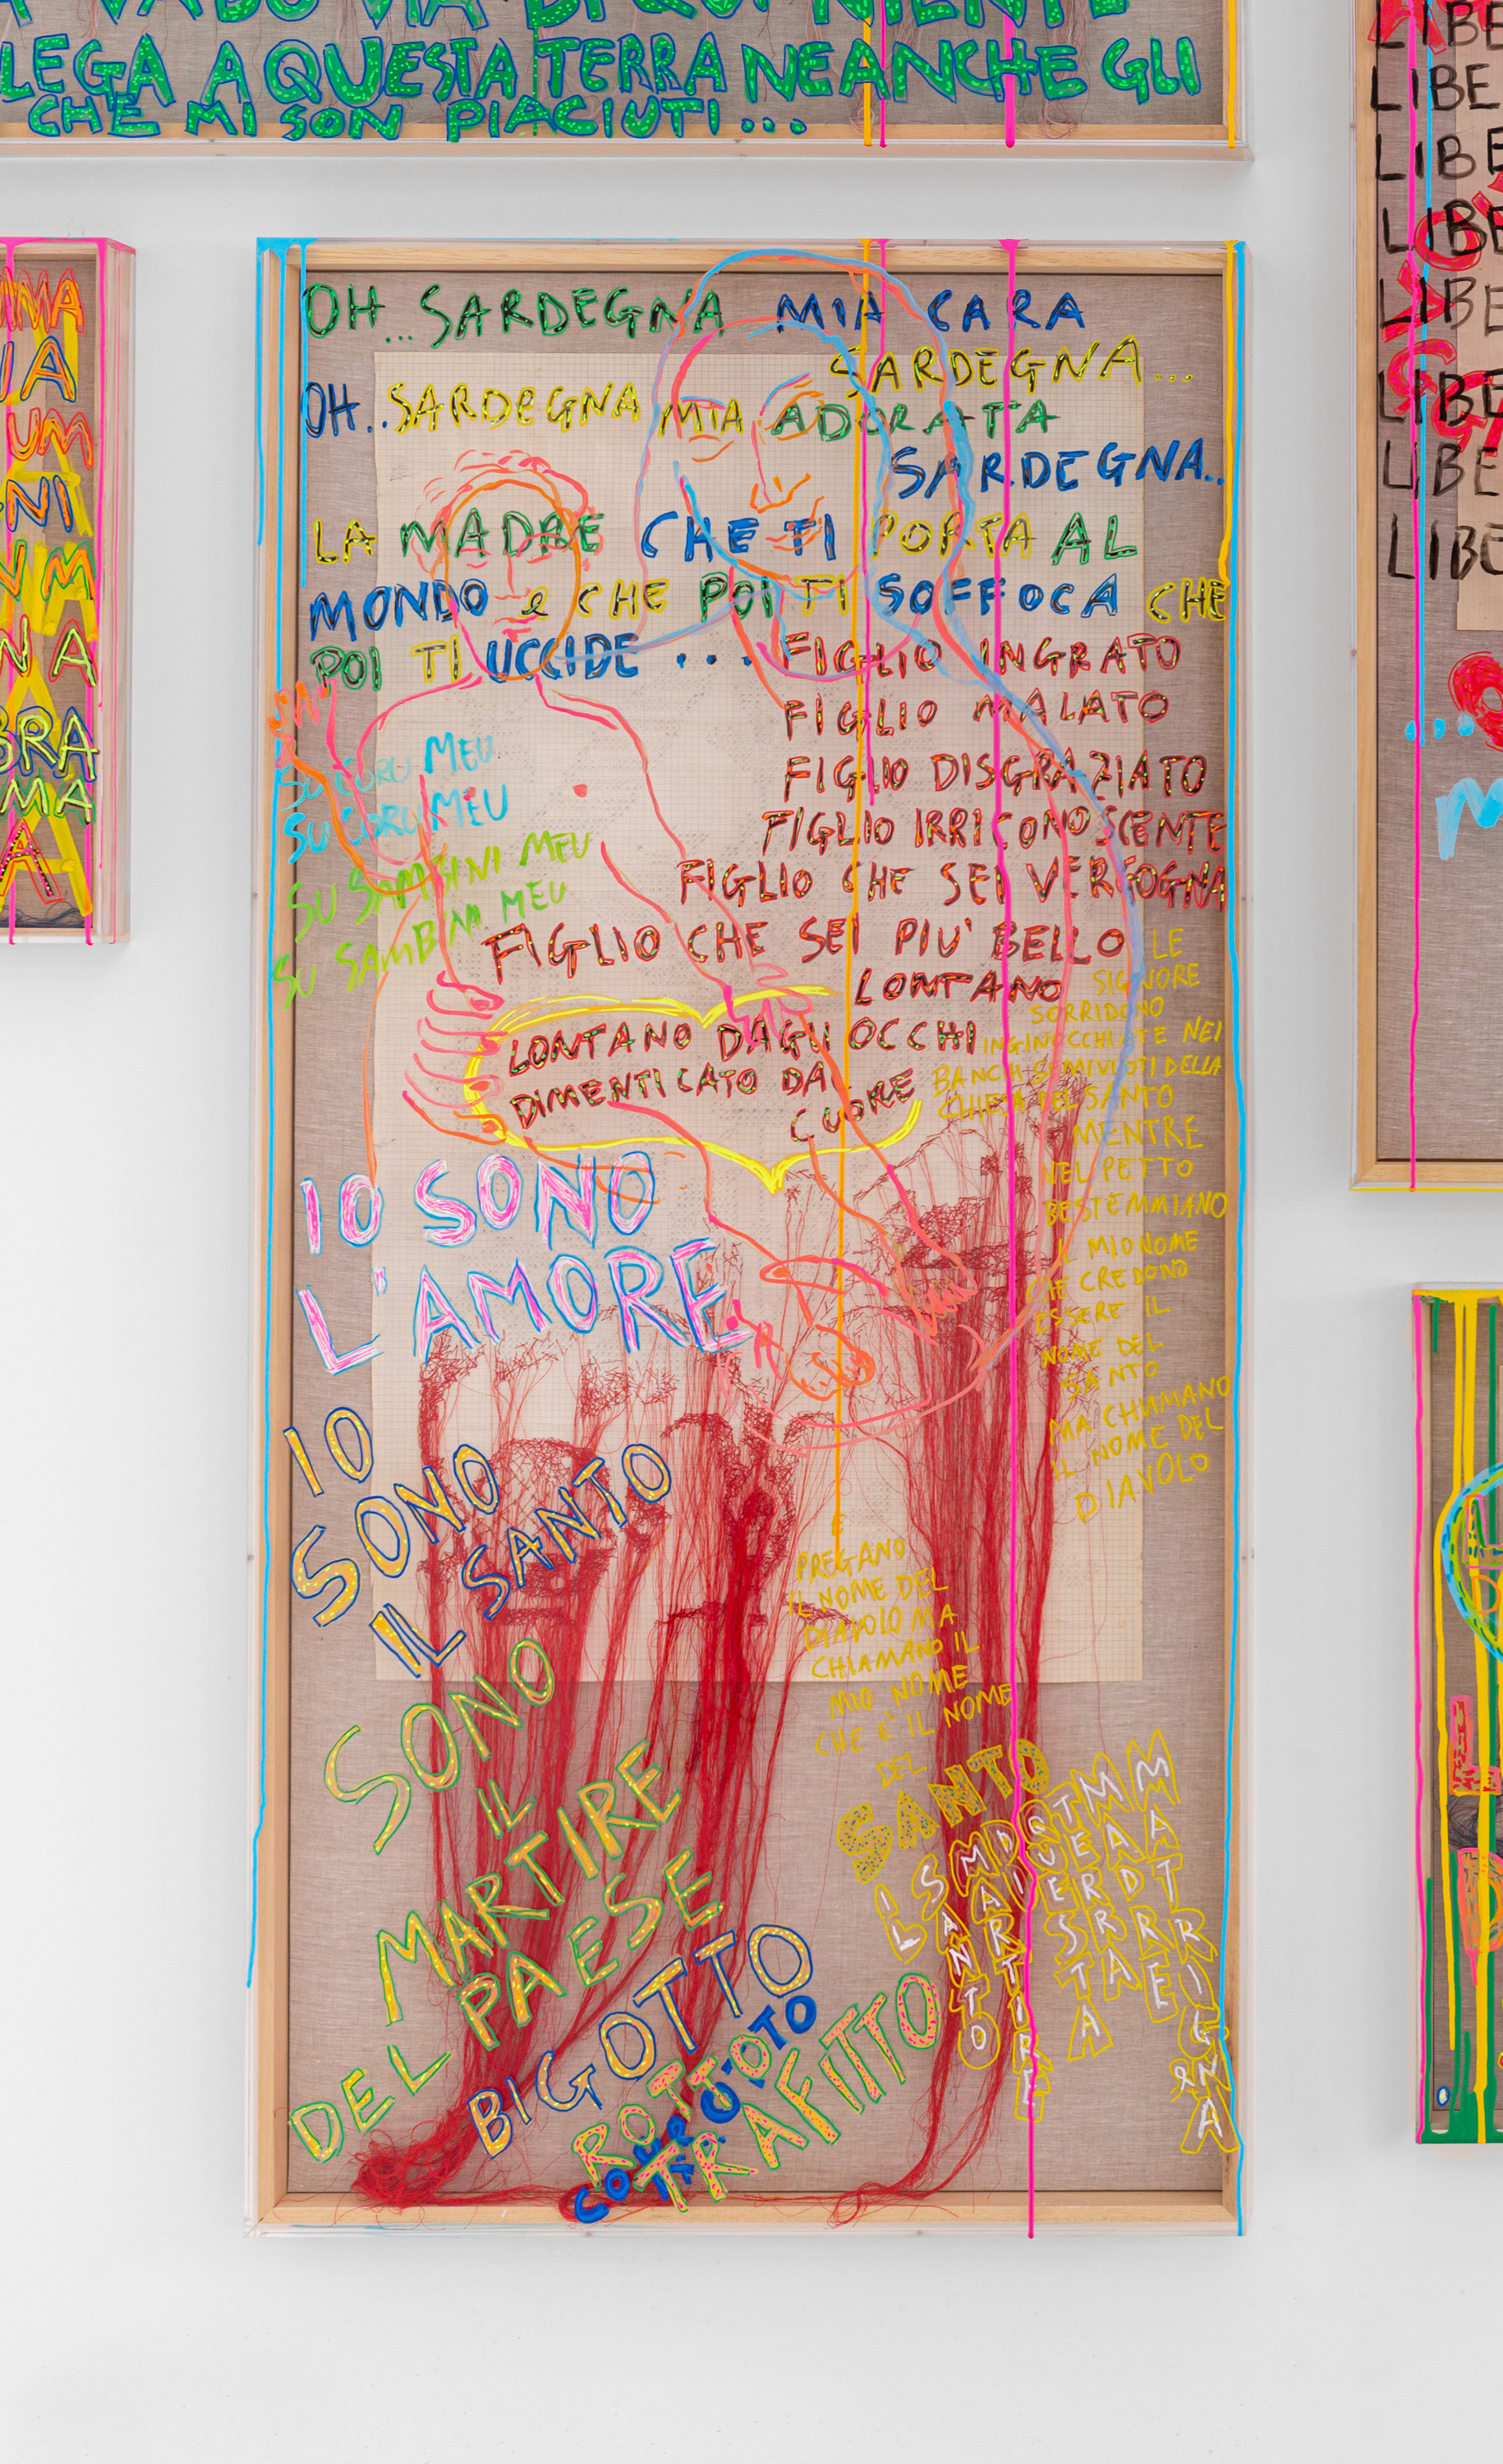 LEGA A QUESTA TERRA NEANCHE GLI
CHE MI SON PIACIUTI...
OH...SARDEGNA MIA CARA
SARDEGNA...
OH..SARDEGNA MIA ADORATA
SARDEGNA..
LA MADRE CHE TI PORTA AL
MONDO e CHE POI TI SOFFOCA CHE
POI TI UCCIDE ...
FIGLIO INGRATO
FIGLIO MALATO
FIGLIO DISGRAZIATO
FIGLIO IRRICONOSCENTE
FIGLIO CHE SEI VERGOGNA
FIGLIO CHE SEI PIU' BELLO
LONTANO
LONTANO DAGLI OCCHI
DIMENTICATO DAL
CUORE
SU CORU MEU
SU CORU MEU
SU SAMBINI MEU
SU SAMBINI MEU
LE
SIGNORE
SORRIDONO
INGINOCCHIATE NEI
BANCHI SEMIVUOTI DELLA
CHIESA DEL SANTO
MENTRE
NEL PETTO
BESTEMMIANO
IL MIO NOME
CHE CREDONO
ESSERE IL
NOME DEL
SANTO
MA CHIAMANO
IL NOME DEL
DIAVOLO
E
PREGANO
IL NOME DEL
DIAVOLO MA
CHIAMANO IL
MIO NOME
CHE E' IL NOME
DEL
SANTO
IL
SANTO
MARTIRE
DI
QUESTA
TERRA
MADRE
MATRIGNA
IO SONO
L'AMORE
IO
SONO
IL SANTO
SONO
IL
MARTIRE
DEL PAESE
BIGOTTO
ROTTO
TRAFITTO
LIBE
LIBE
LIBE
LIBE
LIBE
LIBE
LIBE
LIBE